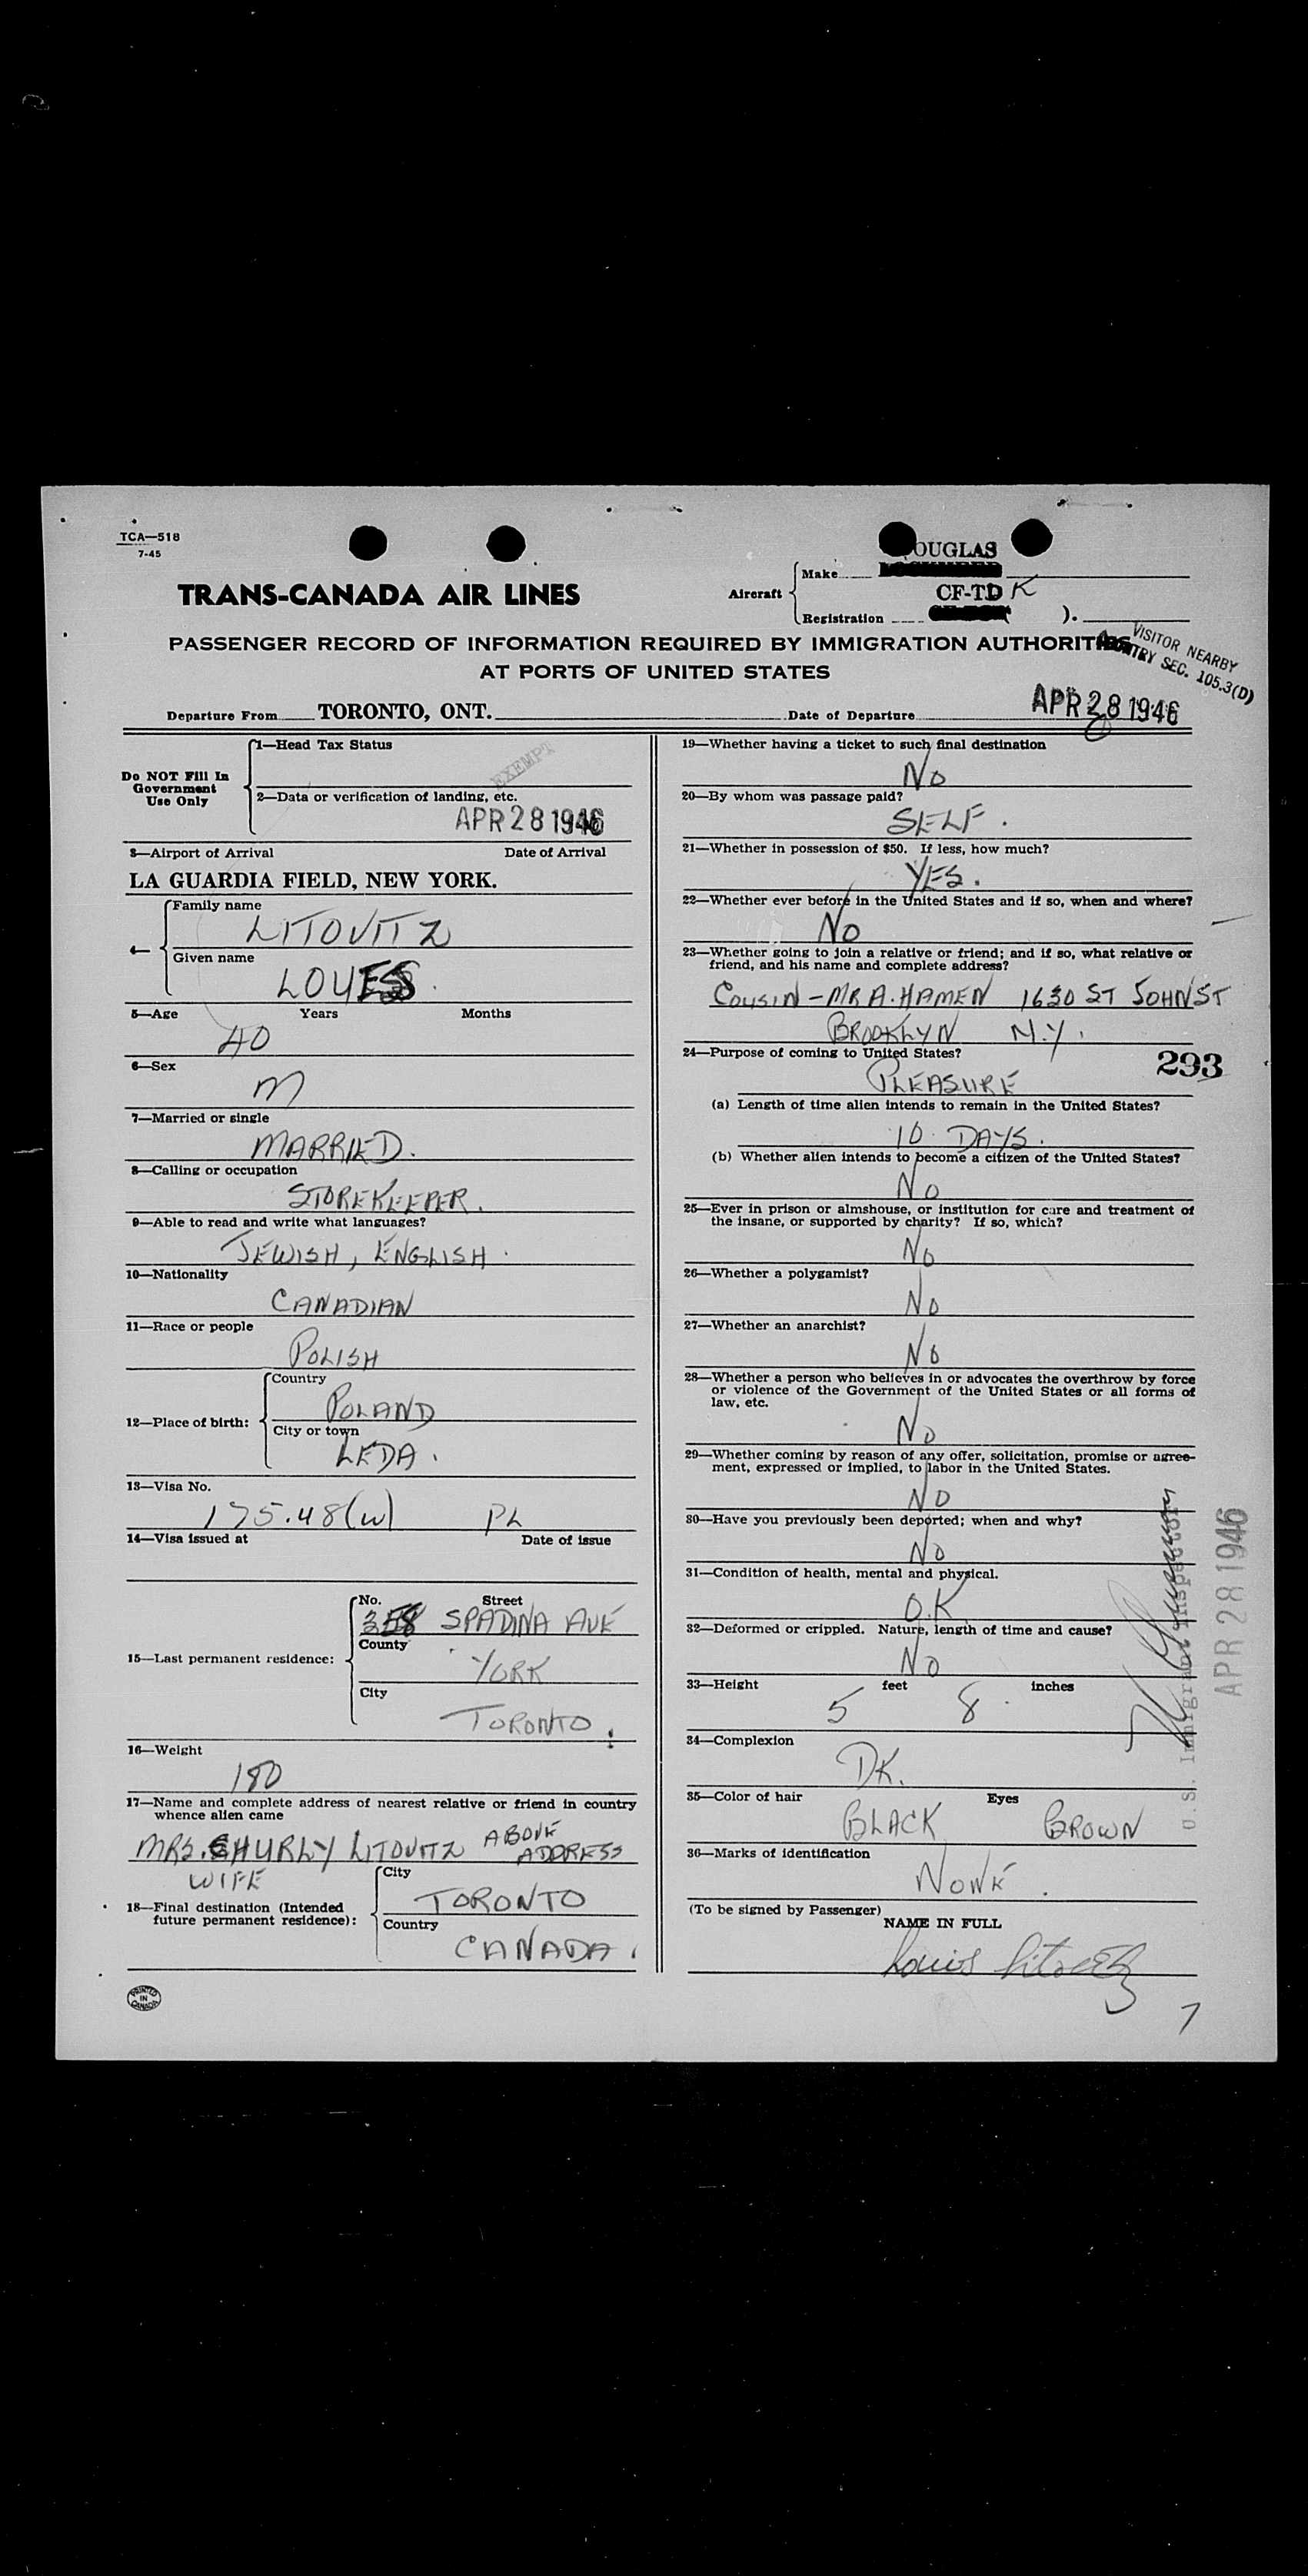 TCA—518
7-45
OUGLAS
Make
TRANS-CANADA AIR LINES
Aircraft
CF-TD K
Registration ).
PASSENGER RECORD OF INFORMATION REQUIRED BY IMMIGRATION AUTHORITIES
AT PORTS OF UNITED STATES
VISITOR NEARBY
SEC. 105.3(D)
Departure From TORONTO, ONT. Date of Departure APR 28 1946
Do NOT Fill In
Government
Use Only
1—Head Tax Status
EXEMPT
2—Data or verification of landing, etc.
APR 28 1946
3—Airport of Arrival Date of Arrival
LA GUARDIA FIELD, NEW YORK.
4—
Family name
LITOVITZ
Given name
LOUES.
5—Age Years Months
40
6—Sex
M
7—Married or single
MARRIED.
8—Calling or occupation
STOREKEEPER.
9—Able to read and write what languages?
JEWISH, ENGLISH.
10—Nationality
CANADIAN
11—Race or people
POLISH
12—Place of birth:
Country
POLAND
City or town
LEDA.
13—Visa No.
175.48(W) PL
14—Visa issued at Date of issue
15—Last permanent residence:
No. Street
SPADINA AVE
County
YORK
City
TORONTO.
16—Weight
180
17—Name and complete address of nearest relative or friend in country
whence alien came
MRS. SHURLY LITOVITZ ABOVE ADDRESS
WIFE
18—Final destination (Intended
future permanent residence):
City
TORONTO
Country
CANADA.
PRINTED
IN
CANADA
19—Whether having a ticket to such final destination
NO
20—By whom was passage paid?
SELF.
21—Whether in possession of $50. If less, how much?
YES.
22—Whether ever before in the United States and if so, when and where?
NO
23—Whether going to join a relative or friend; and if so, what relative or
friend, and his name and complete address?
COUSIN – MR A. HAMEN 1630 ST JOHN ST
BROOKLYN N.Y.
24—Purpose of coming to United States?
293
PLEASURE
(a) Length of time alien intends to remain in the United States?
10 DAYS.
(b) Whether alien intends to become a citizen of the United States?
NO
25—Ever in prison or almshouse, or institution for care and treatment of
the insane, or supported by charity? If so, which?
NO
26—Whether a polygamist?
NO
27—Whether an anarchist?
NO
28—Whether a person who believes in or advocates the overthrow by force
or violence of the Government of the United States or all forms of
law, etc.
NO
29—Whether coming by reason of any offer, solicitation, promise or agree-
ment, expressed or implied, to labor in the United States.
NO
30—Have you previously been deported; when and why?
NO
31—Condition of health, mental and physical.
O.K
32—Deformed or crippled. Nature, length of time and cause?
NO
33—Height feet inches
5 8
34—Complexion
DK.
35—Color of hair Eyes
BLACK BROWN
36—Marks of identification
NONE.
(To be signed by Passenger)
NAME IN FULL
Louis Litovitz
7
U.S. Immigrant Inspector
APR 28 1946